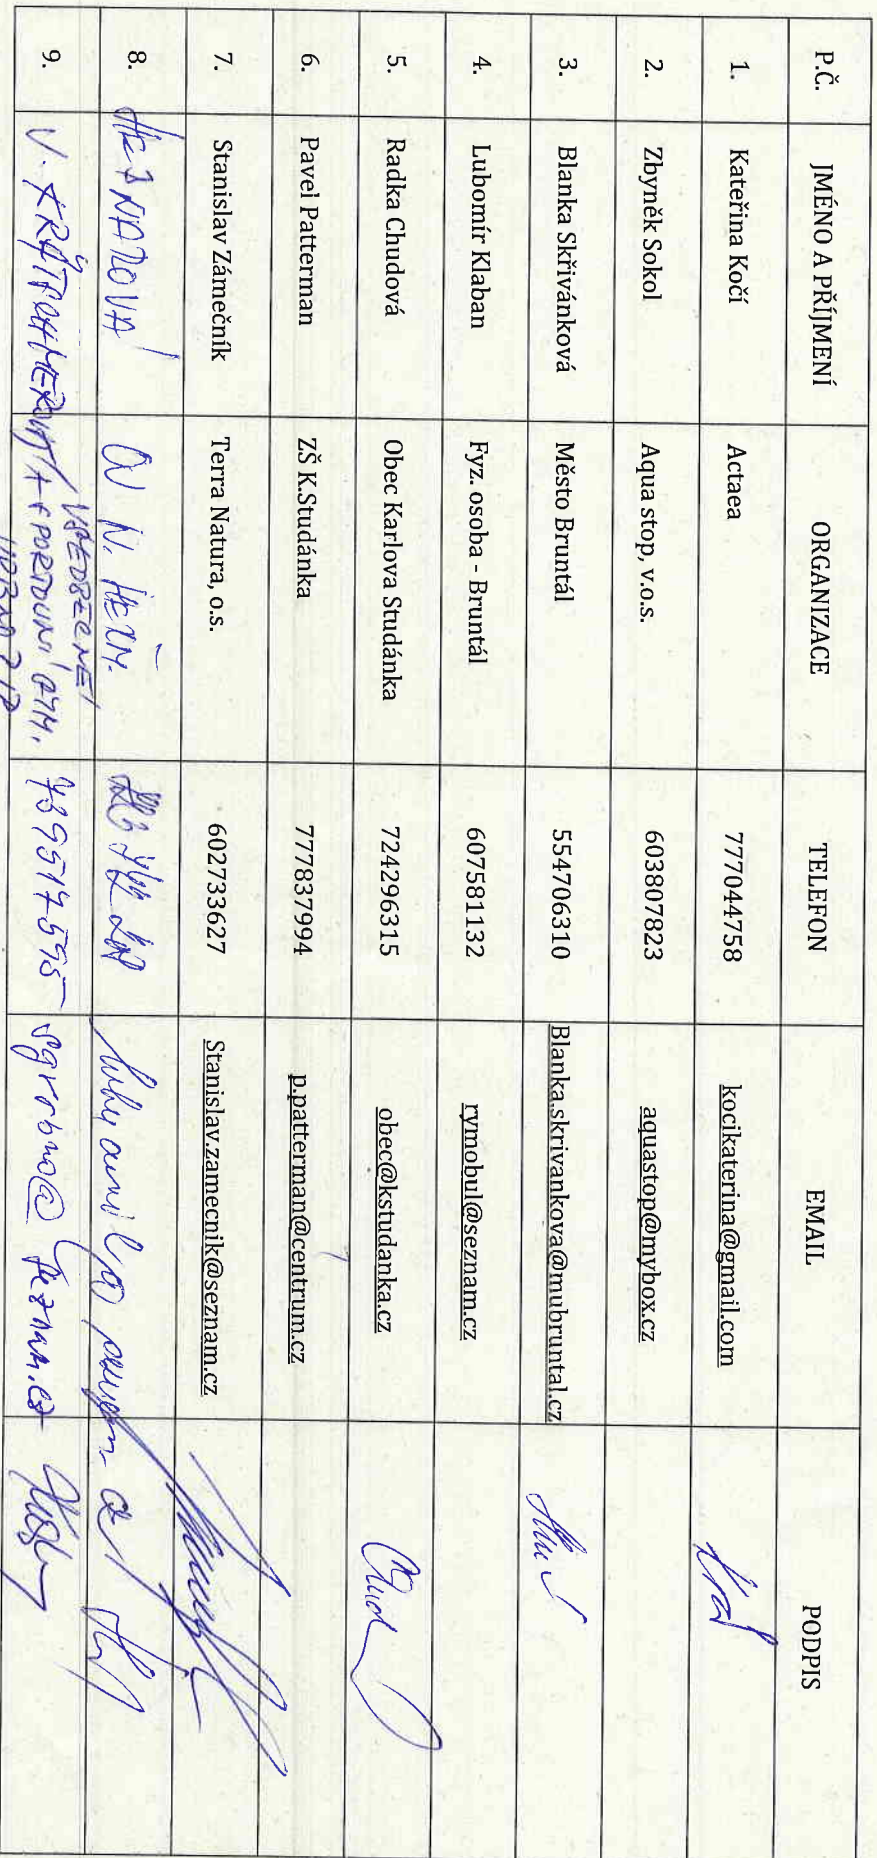 P.Č. JMÉNO A PŘÍJMENÍ ORGANIZACE TELEFON EMAIL PODPIS
1. Kateřina Kočí Actaea 777044758 kocikaterina@gmail.com
2. Zbyněk Sokol Aqua stop, v.o.s. 603807823 aquastop@mybox.cz
3. Blanka Skřivánková Město Bruntál 554706310 Blanka.skrivankova@mubruntal.cz
4. Lubomír Klaban Fyz. osoba - Bruntál 607581132 rymobul@seznam.cz
5. Radka Chudová Obec Karlova Studánka 724296315 obec@kstudanka.cz
6. Pavel Patterman ZŠ K.Studánka 777837994 p.patterman@centrum.cz
7. Stanislav Zámečník Terra Natura, o.s. 602733627 Stanislav.zamecnik@seznam.cz
8.
9. V. 739517595 sgvrbno@seznam.cz